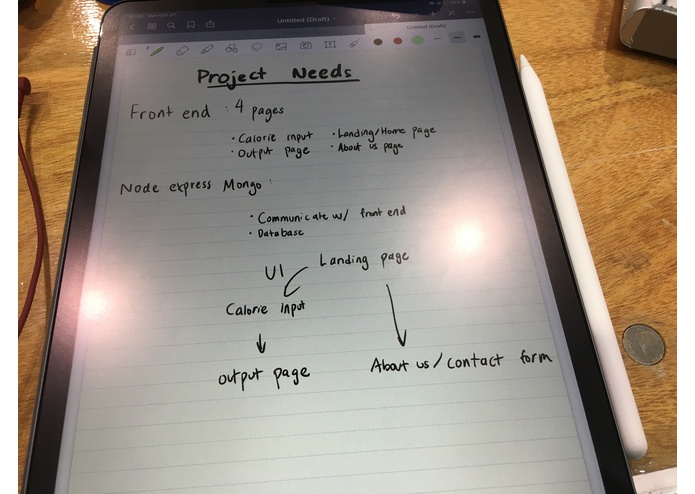 Untitled (Draft)
Untitled (Draft)
Project Needs
Front end : 4 pages
· Calorie input · Landing/Home page
· Output page · About us page
Node express Mongo :
· Communicate w/ front end
· Database
UI Landing page
Calorie input
output page About us / contact form